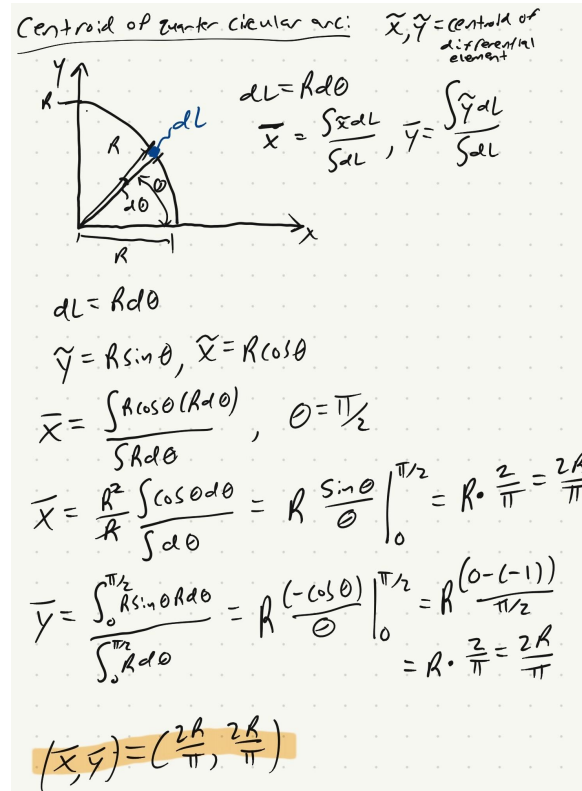 Centroid of quarter circular arc:
x̃, ỹ = centroid of
differential
element
y
R
R
dL
θ
dθ
x
R
dL = Rdθ
x̄ = ∫x̃dL / ∫dL , ȳ = ∫ỹdL / ∫dL
dL = Rdθ
ỹ = Rsinθ, x̃ = Rcosθ
x̄ = ∫Rcosθ(Rdθ) / ∫Rdθ , θ = π/2
x̄ = R²/R ∫cosθdθ / ∫dθ = R sinθ/θ |₀^π/2 = R · 2/π = 2R/π
ȳ = ∫₀^π/2 Rsinθ Rdθ / ∫₀^π/2 Rdθ = R (-cosθ)/θ |₀^π/2 = R (0-(-1))/π/2
= R · 2/π = 2R/π
(x̄, ȳ) = (2R/π, 2R/π)